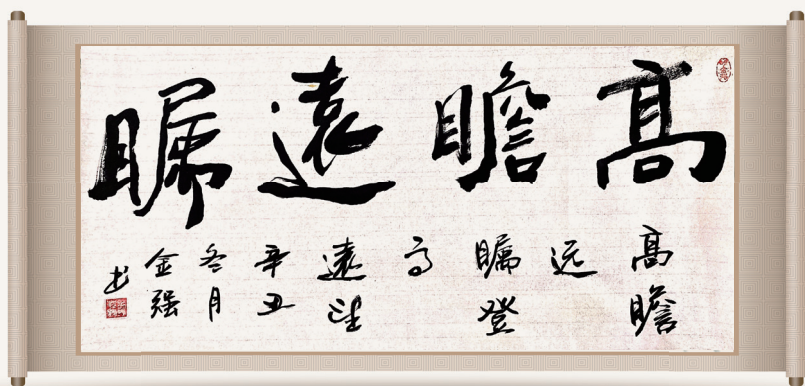 髙瞻遠瞩
髙瞻
远
瞩登
高
遠望
辛丑
冬月
金强
书